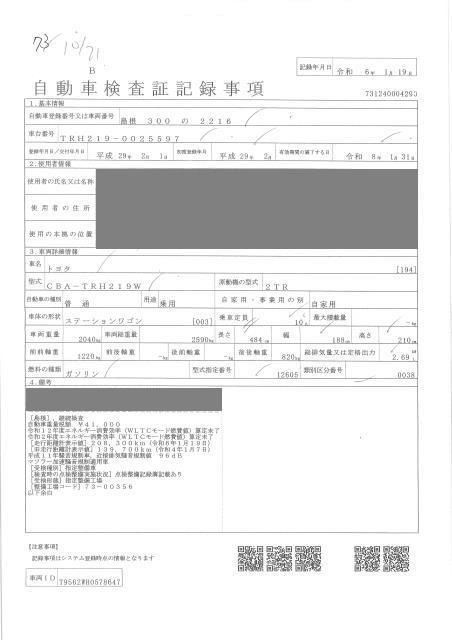 73 10/21
B
自動車検査証記録事項
記録年月日 令和 6年 1月 19日
731240004293
1.基本情報
自動車登録番号又は車両番号 島根 300 の 2216
車台番号 TRH219-0025597
登録年月日/交付年月日 平成 29年 2月 1日 初度登録年月 平成 29年 2月 有効期間の満了する日 令和 8年 1月 31日
2.使用者情報
使用者の氏名又は名称
使用者の住所
使用の本拠の位置
3.車両詳細情報
車名 トヨタ [194]
型式 CBA-TRH219W 原動機の型式 2TR
自動車の種別 普通 用途 乗用 自家用・事業用の別 自家用
車体の形状 ステーションワゴン [003] 乗車定員 10人 最大積載量 -kg
車両重量 2040kg 車両総重量 2590kg 長さ 484cm 幅 188cm 高さ 210cm
前前軸重 1220kg 前後軸重 -kg 後前軸重 -kg 後後軸重 820kg 総排気量又は定格出力 2.69L
燃料の種類 ガソリン 型式指定番号 12605 類別区分番号 0038
4.備考
[島根],継続検査
自動車重量税額 ¥41,000
令和12年度エネルギー消費効率(WLTCモード燃費値)算定未了
令和2年度エネルギー消費効率(WLTCモード燃費値)算定未了
[走行距離計表示値]208,300km(令和6年1月19日)
[旧走行距離計表示値]139,700km(令和4年1月7日)
平成11年騒音規制車,近接排気騒音規制値 96dB
マフラー加速騒音規制適用車
[受検種別]指定整備車
[検査時の点検整備実施状況]点検整備記録簿記載あり
[受検形態]指定整備工場
[整備工場コード]73-00356
以下余白
[注意事項]
記録事項はシステム登録時点の情報となります
車両ID T9562WH0578647